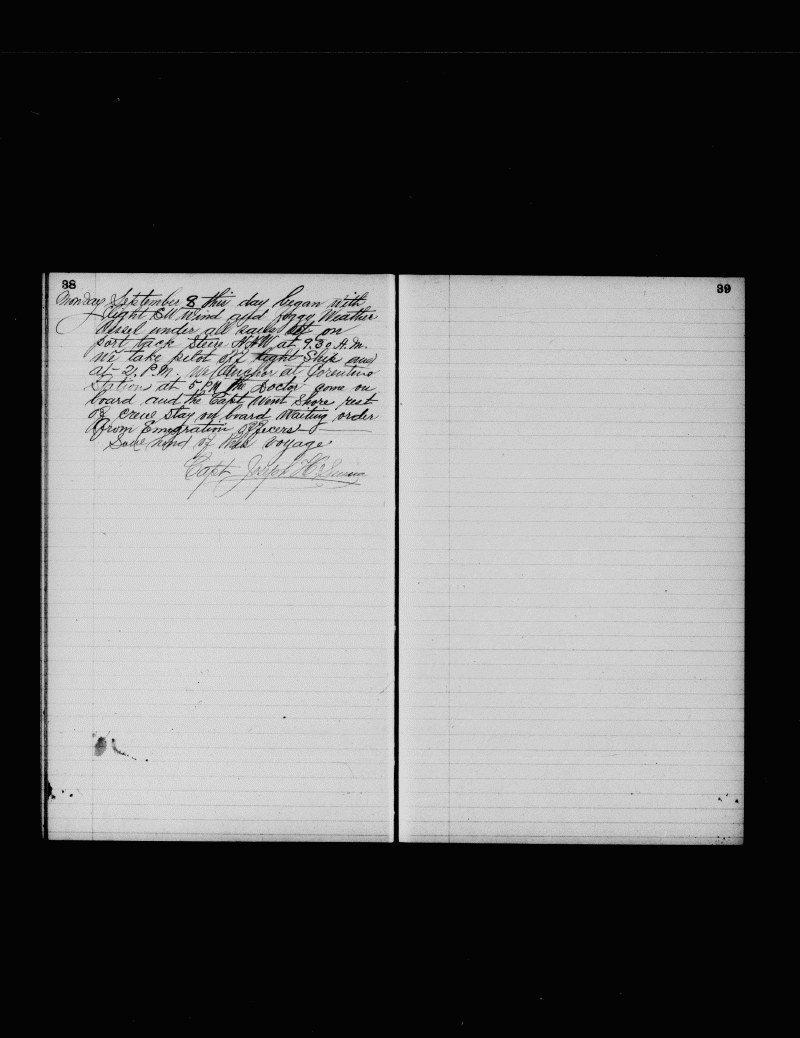 38
Monday September 8 this day began with
light SW Wind and foggy Weather
Vessel under all sails set on
port tack Steer NNW at 9.30 A.M.
We take pilot off light Ship and
at 2. P.M. We Anchor at Corentine
Station at 5 PM the Doctor come on
board and the Capt Went Shore rest
of crew Stay on board Waiting order
from Emigration officers
So end of this voyage
Capt Joseph H
39